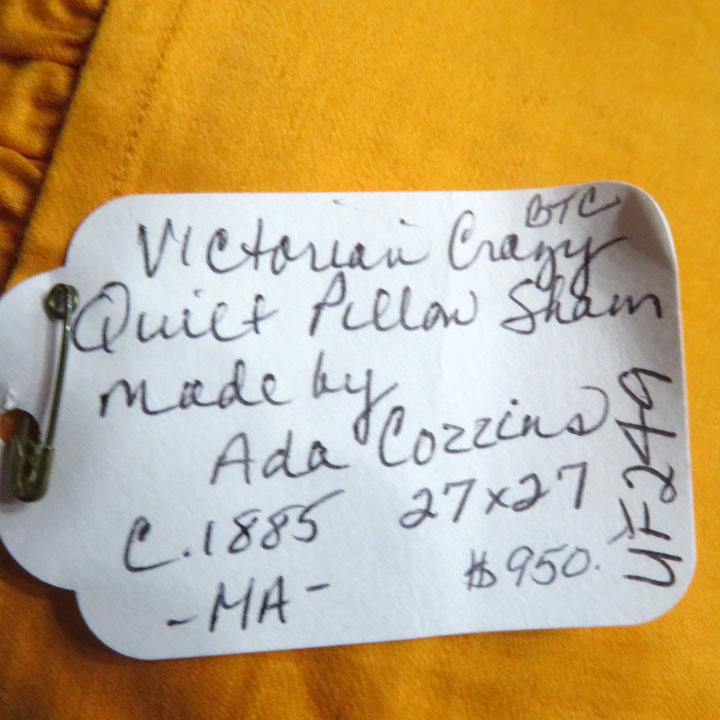 BTC
Victorian Crazy
Quilt Pillow Sham
made by
Ada Cozzins
C.1885 27x27
-MA- $950.
UF249